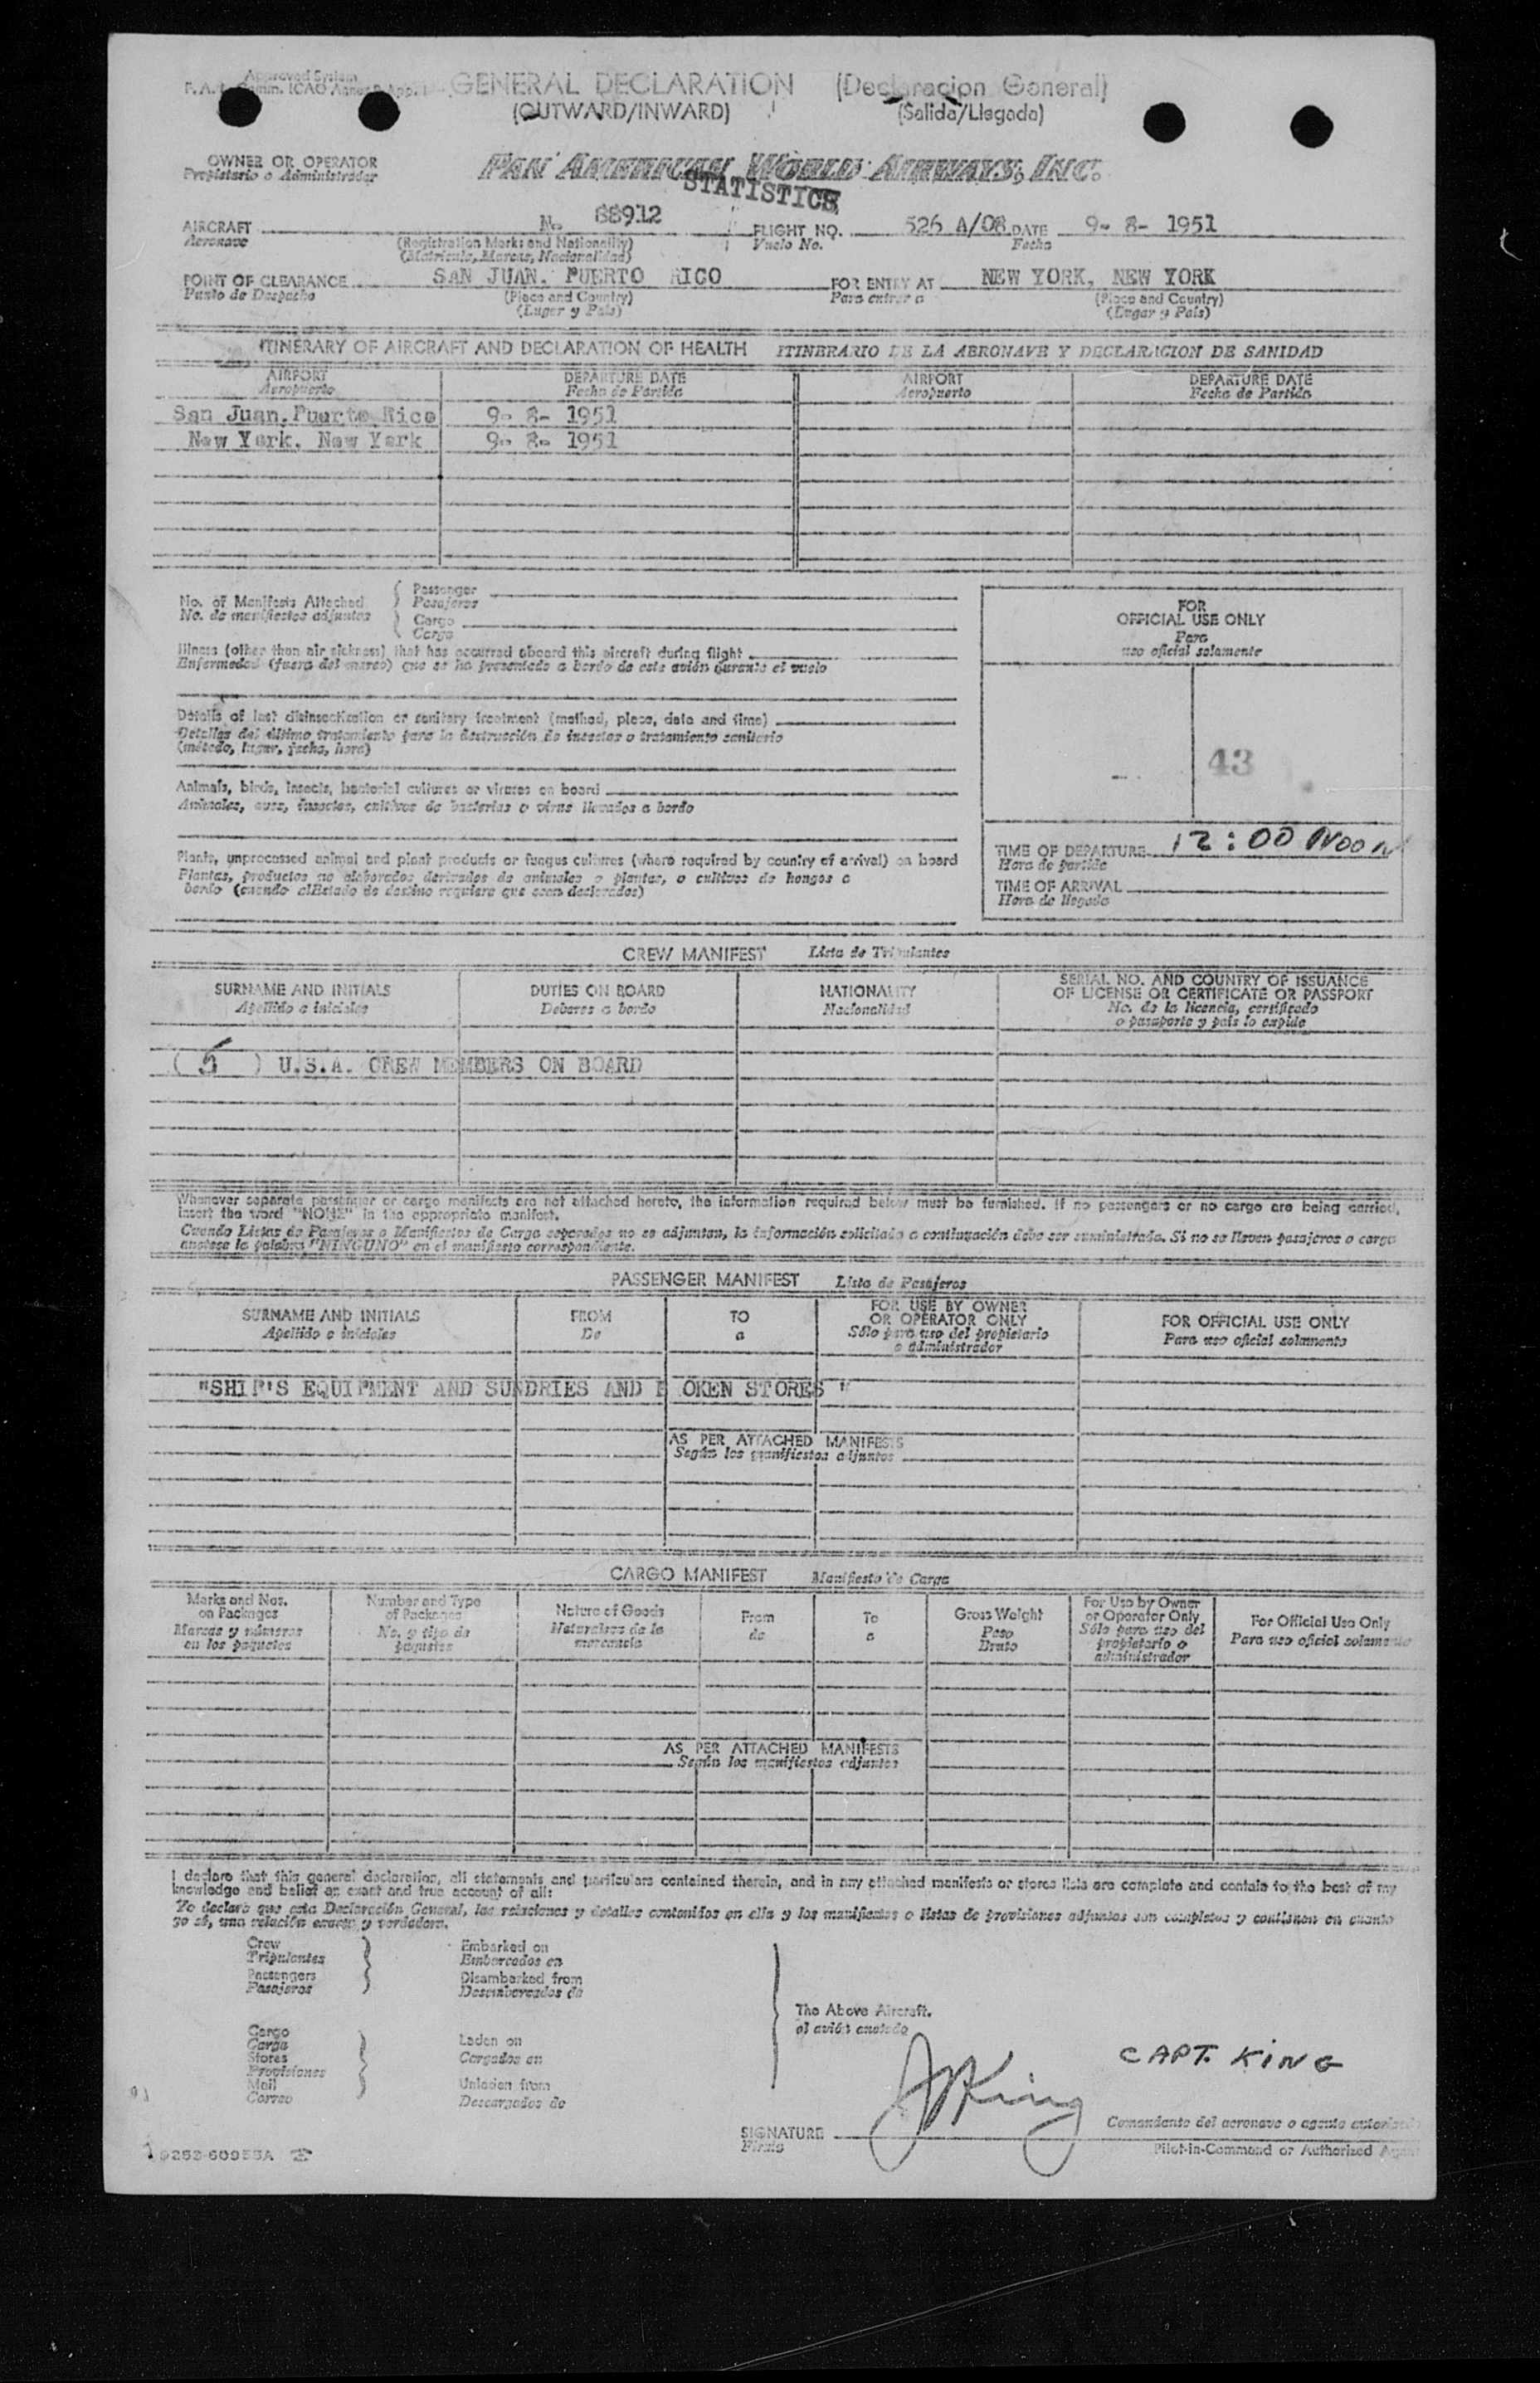 Approved System
GENERAL DECLARATION (Declaracion General)
(OUTWARD/INWARD) (Salida/Llegada)
OWNER OR OPERATOR
Propietario o Administrador
PAN AMERICAN WORLD AIRWAYS, INC.
STATISTICS
AIRCRAFT N- 88912 FLIGHT NO. 526 A/08 DATE 9- 8- 1951
Aeronave (Registration Marks and Nationality) Vuelo No. Fecha
(Matricula, Marcas, Nacionalidad)
POINT OF CLEARANCE SAN JUAN, PUERTO RICO FOR ENTRY AT NEW YORK, NEW YORK
Punto de Despacho (Place and Country) Para entrar a (Place and Country)
(Lugar y País) (Lugar y País)
ITINERARY OF AIRCRAFT AND DECLARATION OF HEALTH ITINERARIO DE LA AERONAVE Y DECLARACION DE SANIDAD
AIRPORT DEPARTURE DATE AIRPORT DEPARTURE DATE
Aeropuerto Fecha de Partida Aeropuerto Fecha de Partida
San Juan, Puerto Rico 9- 8- 1951
New York, New York 9- 8- 1951
No. of Manifests Attached Passenger
No. de manifiestos adjuntos Pasajeros
Cargo
Carga
FOR
OFFICIAL USE ONLY
Para
uso oficial solamente
Illness (other than air sickness) that has occurred aboard this aircraft during flight
Enfermedad (fuera del mareo) que se ha presentado a bordo de este avión durante el vuelo
Details of last disinsectization or sanitary treatment (method, place, date and time)
Detalles del último tratamiento para la destrucción de insectos o tratamiento sanitario
(método, lugar, fecha, hora)
43
Animals, birds, insects, bacterial cultures or viruses on board
Animales, aves, insectos, cultivos de bacterias o virus llevados a bordo
Plants, unprocessed animal and plant products or fungus cultures (where required by country of arrival) on board
Plantas, productos no elaborados derivados de animales o plantas, o cultivos de hongos a
bordo (cuando el Estado de destino requiere que sean declarados)
TIME OF DEPARTURE 12:00 NOON
Hora de partida
TIME OF ARRIVAL
Hora de llegada
CREW MANIFEST Lista de Tripulantes
SURNAME AND INITIALS DUTIES ON BOARD NATIONALITY SERIAL NO. AND COUNTRY OF ISSUANCE
OF LICENSE OR CERTIFICATE OR PASSPORT
Apellido e iniciales Deberes a bordo Nacionalidad No. de la licencia, certificado
o pasaporte y país lo expide
( 5 ) U.S.A. CREW MEMBERS ON BOARD
Whenever separate passenger or cargo manifests are not attached hereto, the information required below must be furnished. If no passengers or no cargo are being carried,
insert the word "NONE" in the appropriate manifest.
Cuando Listas de Pasajeros o Manifiestos de Carga separados no se adjuntan, la información solicitada a continuación debe ser suministrada. Si no se llevan pasajeros o carga
anótese la palabra "NINGUNO" en el manifiesto correspondiente.
PASSENGER MANIFEST Lista de Pasajeros
SURNAME AND INITIALS FROM TO FOR USE BY OWNER
OR OPERATOR ONLY FOR OFFICIAL USE ONLY
Apellido e iniciales De a Sólo para uso del propietario
o administrador Para uso oficial solamente
"SHIP'S EQUIPMENT AND SUNDRIES AND B OKEN STORES "
AS PER ATTACHED MANIFESTS
Según los manifiestos adjuntos
CARGO MANIFEST Manifiesto de Carga
Marks and Nos.
on Packages
Marcas y números
en los paquetes
Number and Type
of Packages
No. y tipo de
paquetes
Nature of Goods
Naturaleza de la
mercancía
From
de
To
a
Gross Weight
Peso
Bruto
For Use by Owner
or Operator Only
Sólo para uso del
propietario o
administrador
For Official Use Only
Para uso oficial solamente
AS PER ATTACHED MANIFESTS
Según los manifiestos adjuntos
I declare that this general declaration, all statements and particulars contained therein, and in any attached manifests or stores lists are complete and contain to the best of my
knowledge and belief an exact and true account of all:
Yo declaro que esta Declaración General, las relaciones y detalles contenidos en ella y los manifiestos o listas de provisiones adjuntos son completos y contienen en cuanto
yo sé, una relación exacta y verdadera.
Crew Embarked on
Tripulantes Embarcados en
Passengers Disembarked from
Pasajeros Desembarcados de
The Above Aircraft.
el avión anotado
Cargo
Carga Laden on
Stores Cargados en
Provisiones
Mail Unladen from
Correo Descargados de
CAPT. KING
JKing
SIGNATURE Comandante del aeronave o agente
Firma Pilot-in-Command or Authorized